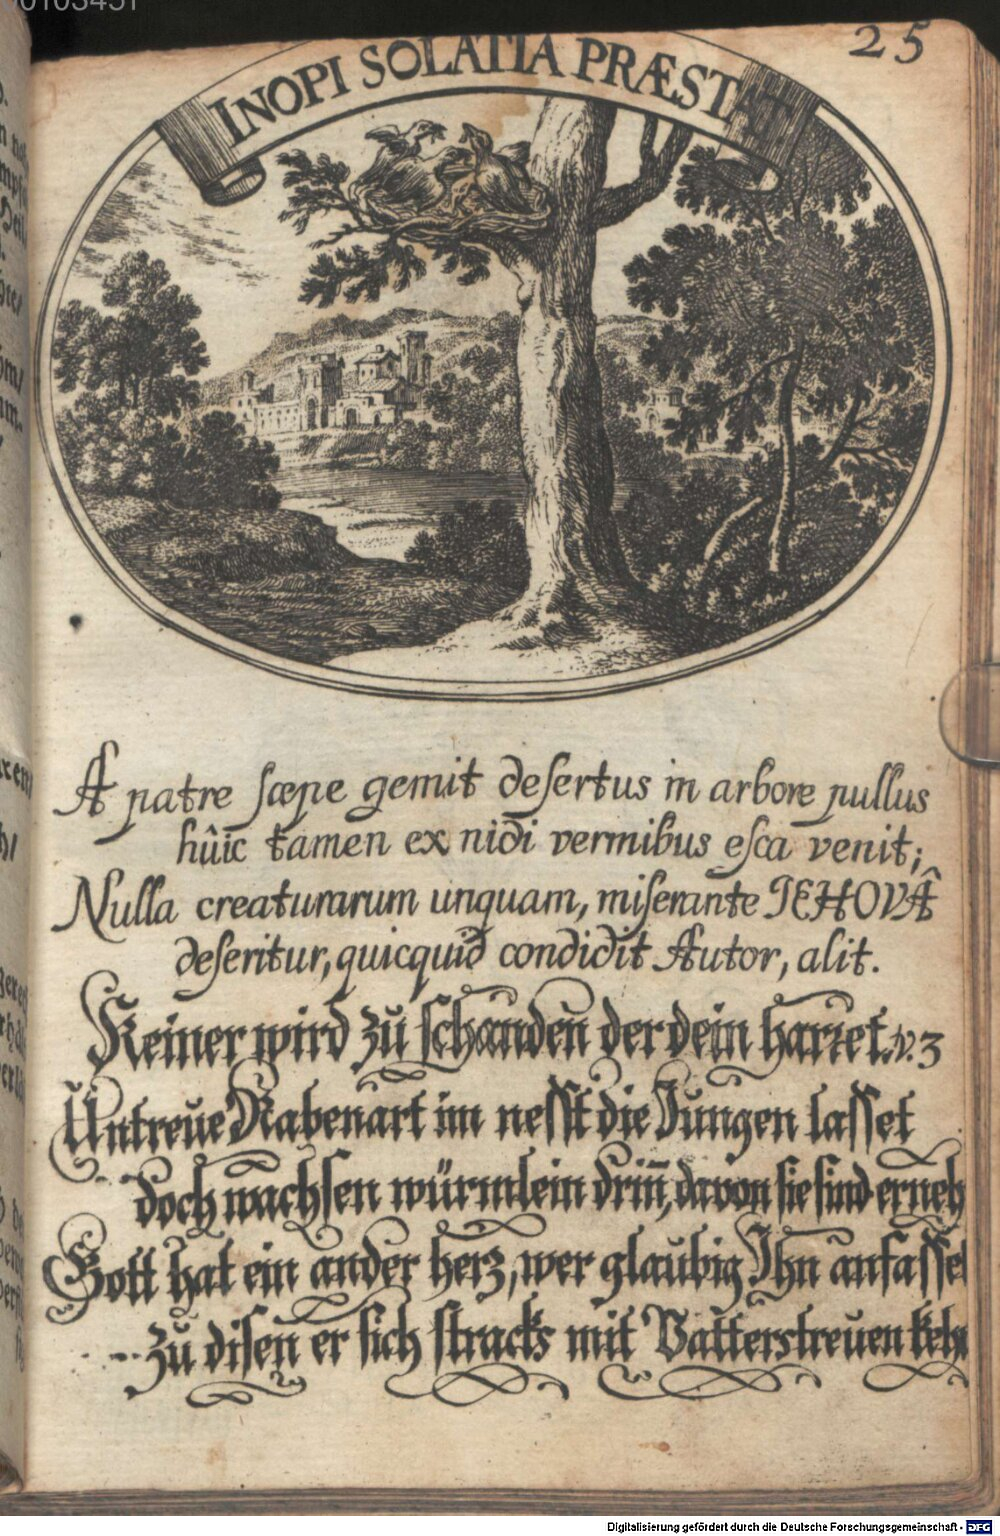 25
INOPI SOLATIA PRÆSTAT
A patre sæpe gemit desertus in arbore pullus
hûic tamen ex nidi vermibus esca venit;
Nulla creaturarum unquam, miserante JEHOVÂ
deseritur, quicquid condidit Autor, alit.
Keiner wird zu schanden der dein harret. v. 3
Untreue Rabenart im nesst die Jungen lasset
doch wachsen würmlein drin̄, davon sie sind erneh
Gott hat ein ander herz, wer glaubig Ihn anfasset
zu disen er sich stracks mit Vatterstreuen kehr
Digitalisierung gefördert durch die Deutsche Forschungsgemeinschaft - DFG